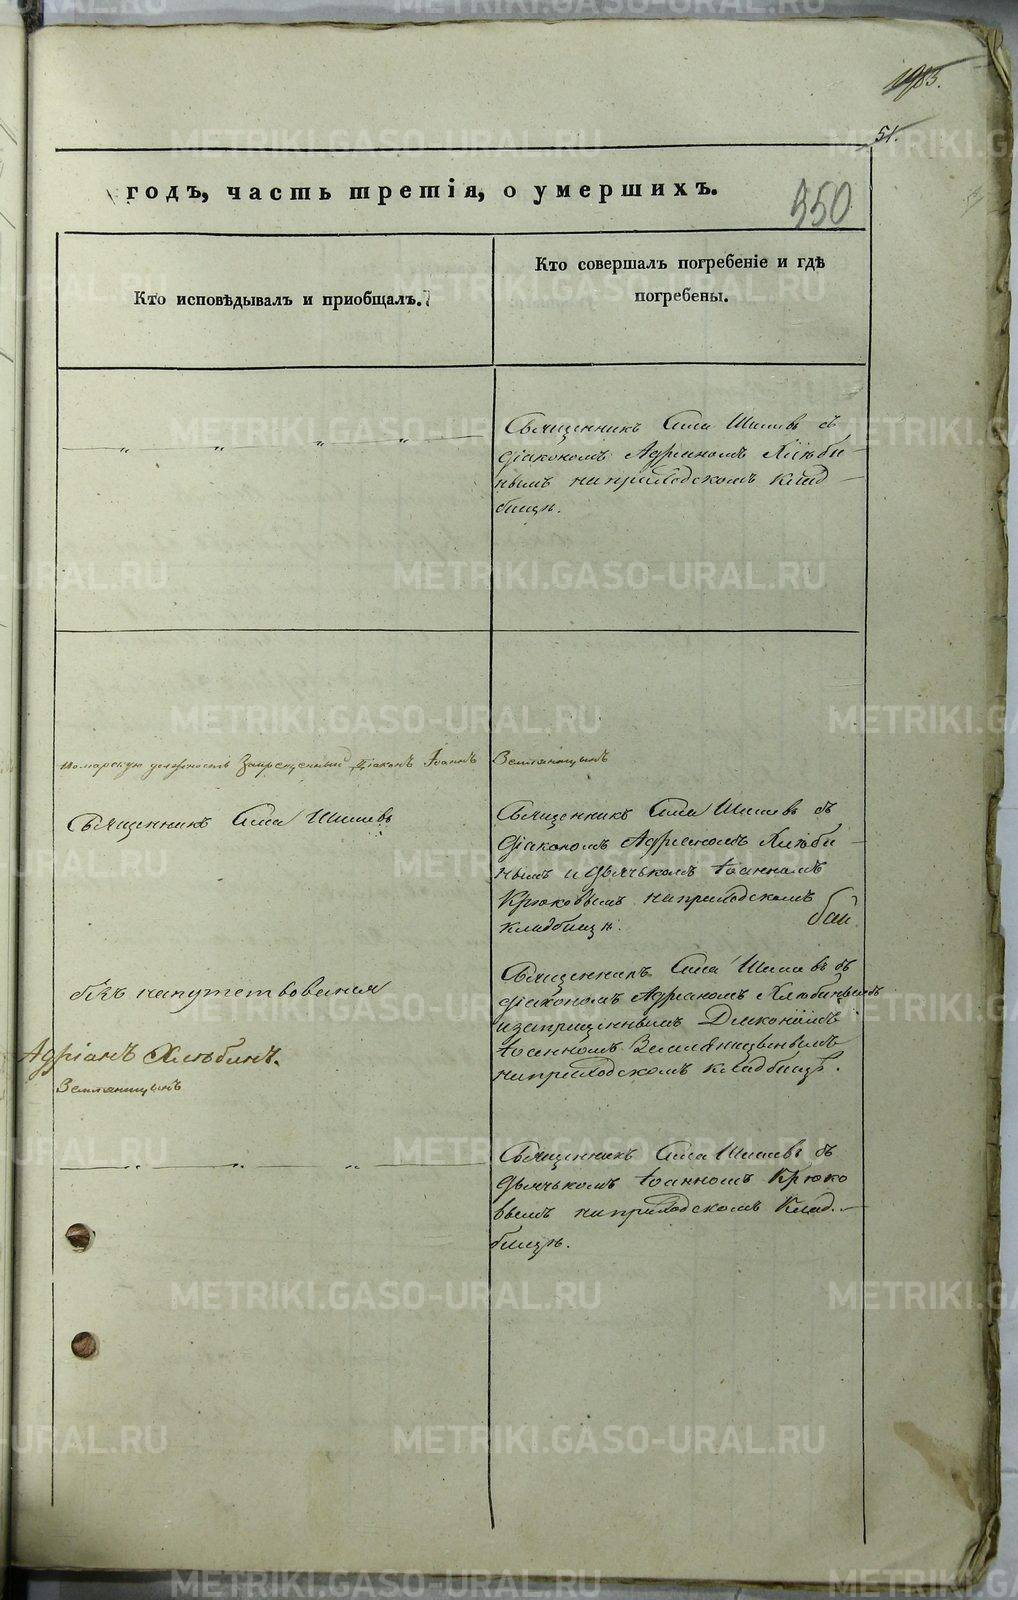 1985.
51.
годъ, часть третія, о умершихъ.
350
Кто исповѣдывалъ и приобщалъ.
Кто совершалъ погребеніе и гдѣ
погребены.
Священникъ Сила Шишевъ съ
діакономъ Адріаномъ Хлѣби
нымъ на приходскомъ клад
бищѣ.
должность Запрещенный Діаконъ Іоаннъ Земляницынъ
Священникъ Сила Шишевъ
Священникъ Сила Шишевъ съ
діакономъ Адріаномъ Хлѣби
нымъ и дьячькомъ Іоанномъ
Крюковымъ на приходскомъ
кладбищѣ.
Безъ напутствованія
Священникъ Сила Шишевъ съ
діакономъ Адріаномъ Хлѣбинымъ
и запрещеннымъ Діакономъ
Іоанномъ Земляницынымъ
на приходскомъ кладбищѣ.
Адріанъ Хлѣбинъ.
Земляницынъ
Священникъ Сила Шишевъ съ
дьячькомъ Іоанномъ Крюко
вымъ на приходскомъ клад
бищѣ.
METRIKI.GASO-URAL.RU